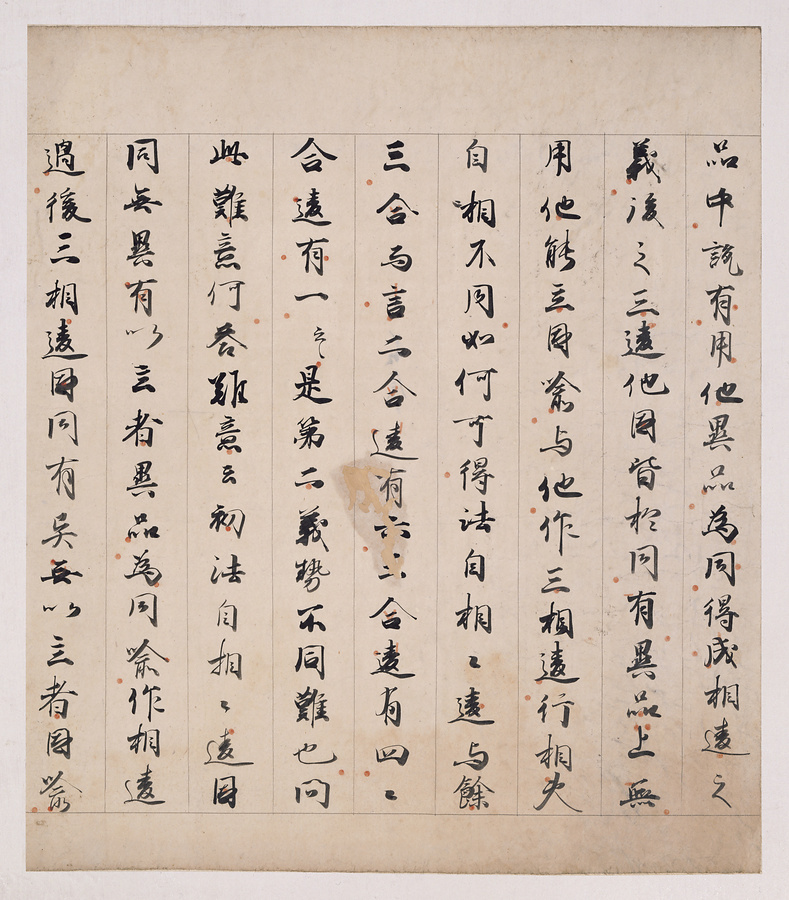 品中説有用他異品為同得成相違之
義後之三違他因皆於同有異品上無
用他能立因喻与他作三相違行相大
自相不同如何可得法自相〻違与餘
三合而言二合違有六三合違有四〻
合違有一之是第二義勢不同難也問
此難意何答難意云初法自相〻違因
同無異有以立者異品為同喻作相違
過後三相違因同有異無以立者因喻